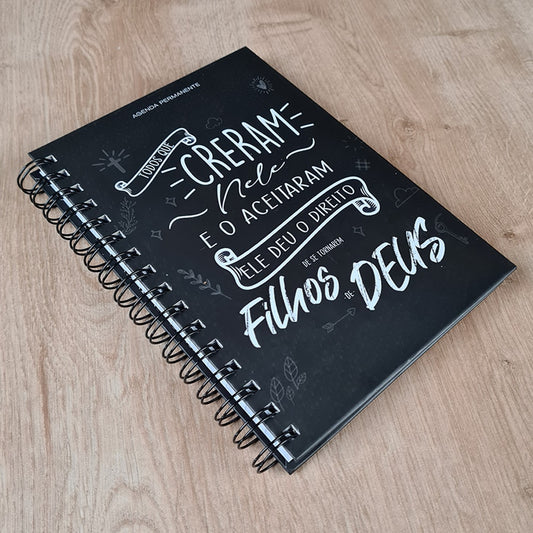 AGENDA PERMANENTE
TODOS QUE
CRERAM
Nele
E O ACEITARAM
ELE DEU O DIREITO
DE SE TORNAREM
Filhos
DE
DEUS